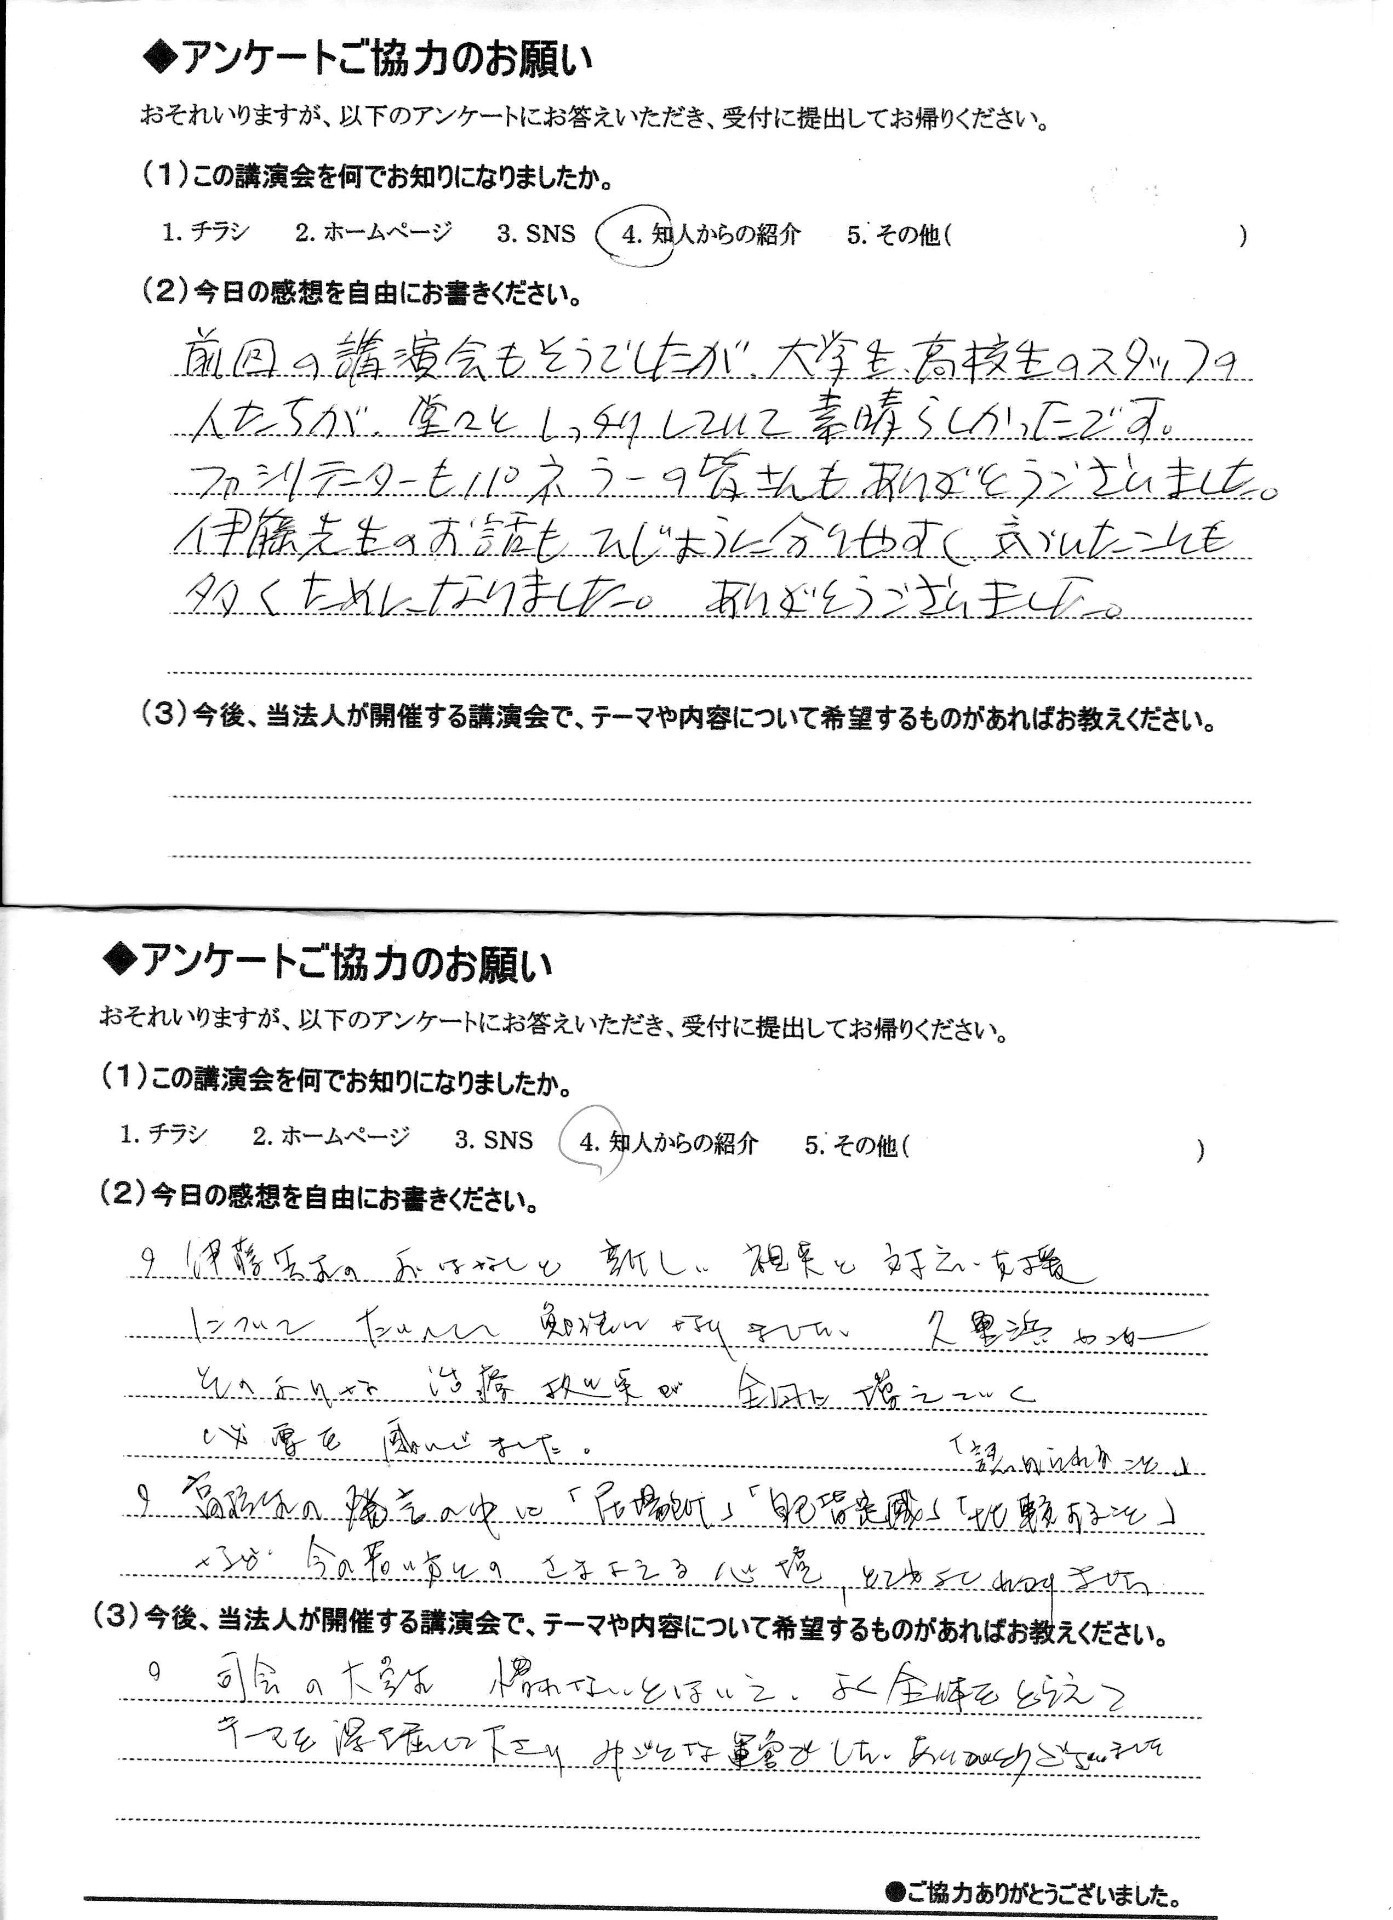 ◆アンケートご協力のお願い
おそれいりますが、以下のアンケートにお答えいただき、受付に提出してお帰りください。
(1)この講演会を何でお知りになりましたか。
1. チラシ 2. ホームページ 3. SNS 4. 知人からの紹介 5. その他( )
(2)今日の感想を自由にお書きください。
前回の講演会もそうでしたが、大学生、高校生のスタッフの
人たちが、堂々としっかりしていて素晴らしかったです。
ファシリテーターもパネラーの皆さんもありがとうございました。
伊藤先生のお話もひじょうに分りやすく、気づいたことも
多くためになりました。ありがとうございました。
(3)今後、当法人が開催する講演会で、テーマや内容について希望するものがあればお教えください。
◆アンケートご協力のお願い
おそれいりますが、以下のアンケートにお答えいただき、受付に提出してお帰りください。
(1)この講演会を何でお知りになりましたか。
1. チラシ 2. ホームページ 3. SNS 4. 知人からの紹介 5. その他( )
(2)今日の感想を自由にお書きください。
伊藤先生のおはなしと新しい視点と支援
についてたいへん勉強になりました。久里浜センター
そのような治療が全国に増えていく
必要を感じました。
「認められること」
高校生の発言の中に「居場所」「自己肯定感」「比較すること」
など今の若い方々の心境、とてもよくわかりました
(3)今後、当法人が開催する講演会で、テーマや内容について希望するものがあればお教えください。
司会の大学生 慣れないとはいえ、よく全体をとらえて
テーマを深堀して下さり みごとな運営でした。ありがとうございました
●ご協力ありがとうございました。